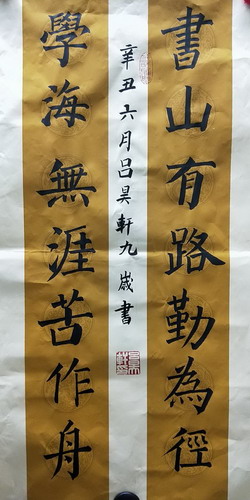 書山有路勤為徑
學海無涯苦作舟
辛丑六月吕昊軒九歲書